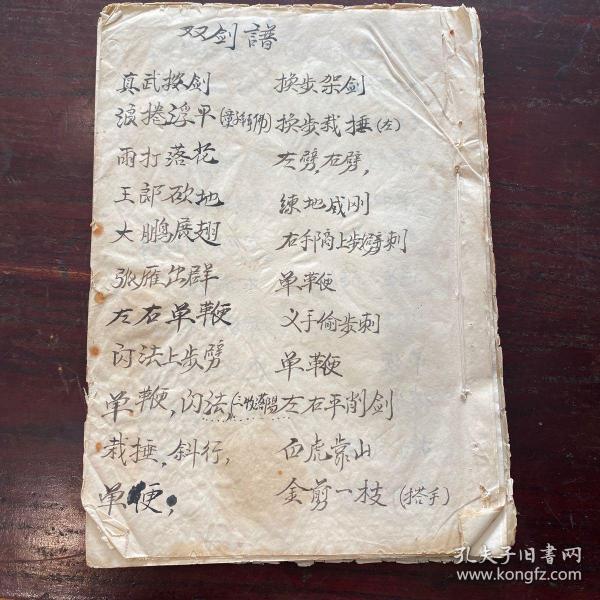 双剑譜
真武拔剑
浪捲浮平(童子拜佛)
雨打落花
王郎砍地
大鹏展翅
张雁出群
左右单鞭
闪法上步劈
单鞭,闪法(三收落陽)
栽捶,斜行,
单鞭;
换步架剑
换步栽捶(左)
左劈,右劈,
練地成刚
右手隔上步劈刺
单鞭
义手偷步刺
单鞭
左右平削剑
白虎靠山
金剪一枝(搭手)
孔夫子旧書网
www.kongfz.com